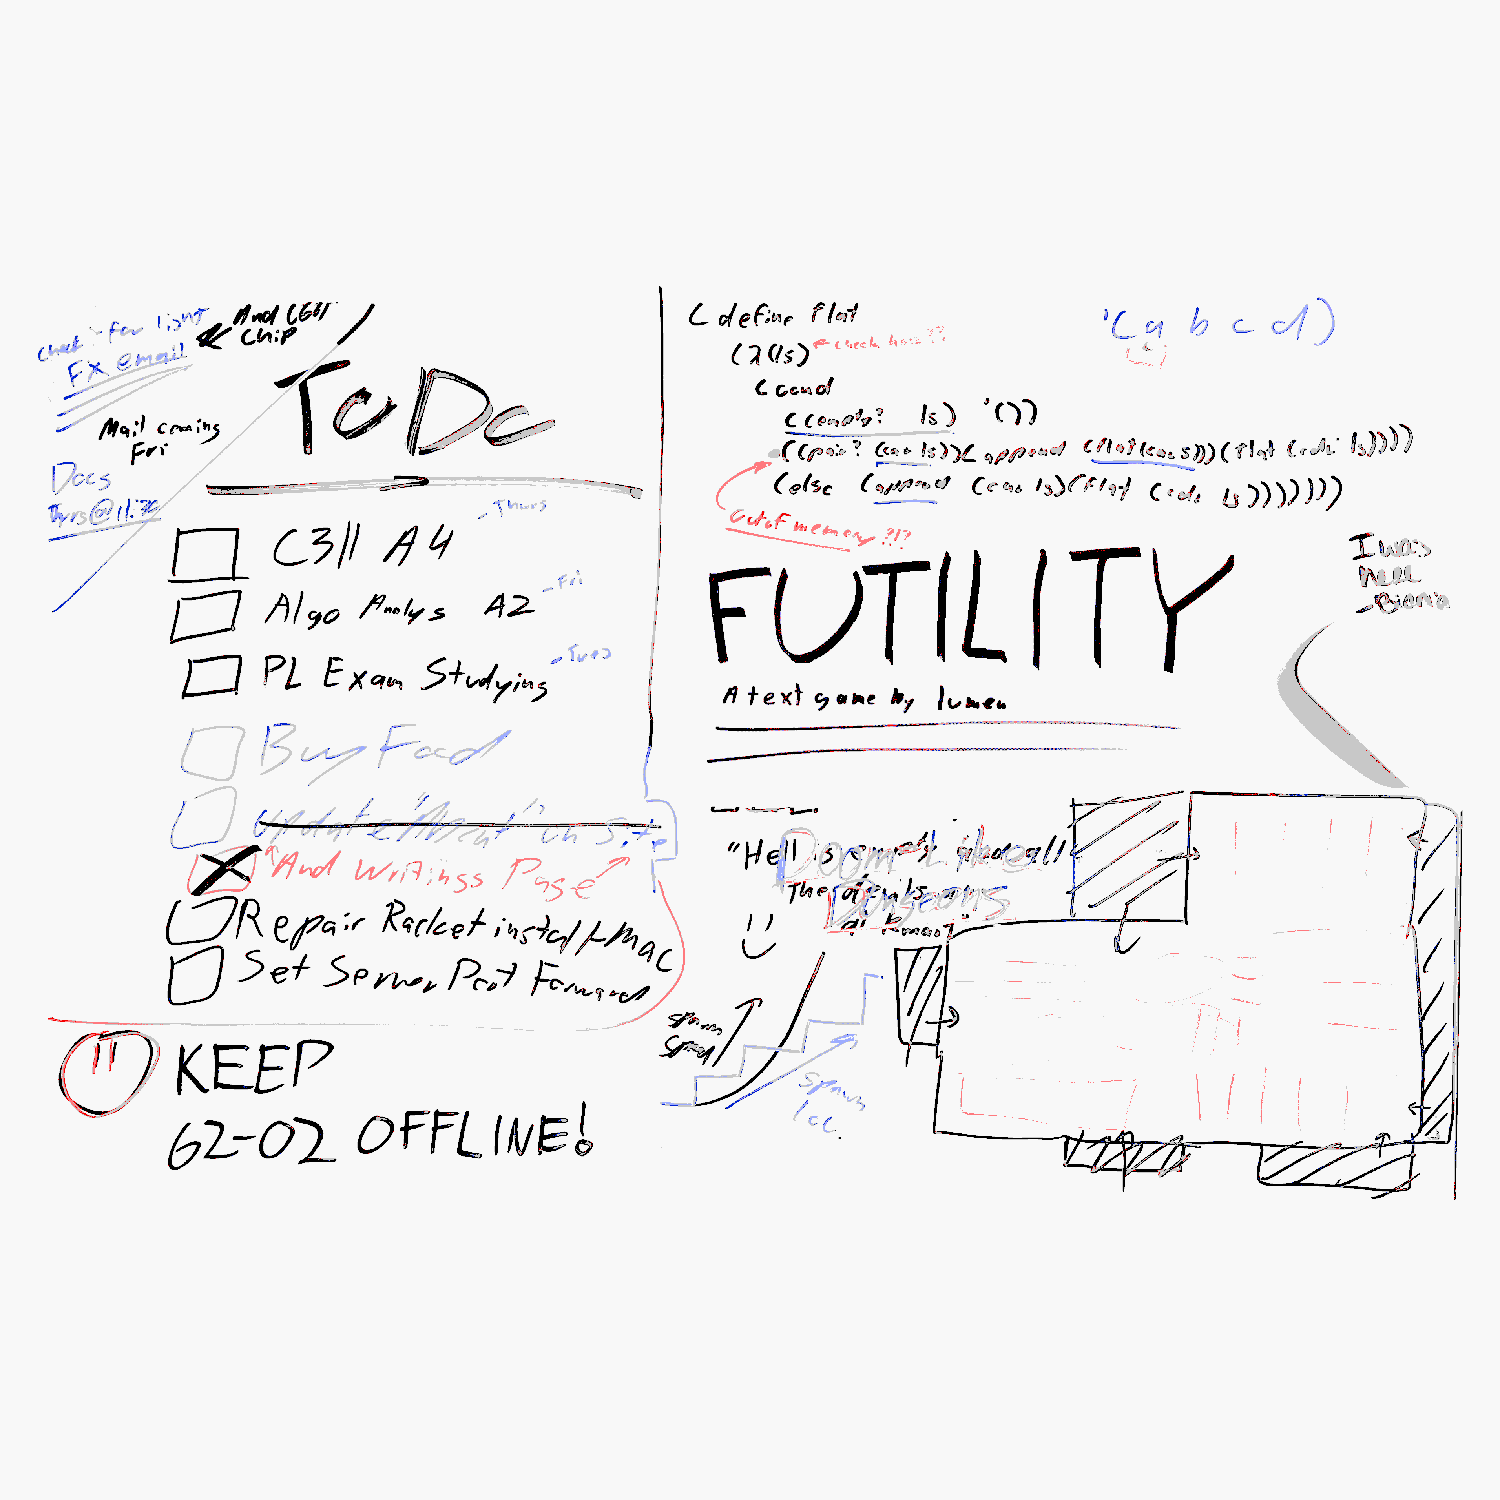 check for light
FX email
And Cell
chip
Mail coming
Fri
Docs
Thurs@11:30
ToDo
C311 A4 - Thurs
Algo Analys A2 - Fri
PL Exam Studying - Tues
Buy Food
Update "About" on Site
And Writings Page
Repair Racket install Mac
Set Server Port Forward
KEEP
62-02 OFFLINE!
(define flat
(λ(ls) check here??
(cond
((empty? ls) '())
((pair? (car ls))(append (flat(car ls))(flat (cdr ls))))
(else (append (car ls)(flat (cdr ls)))))))
out of memory?!?
'(a b c d)
FUTILITY
A text game by lumen
I was
here
"Hell is empty
The devils
Doom-Like
Dungeons
spawn
speed
spawn
loc.